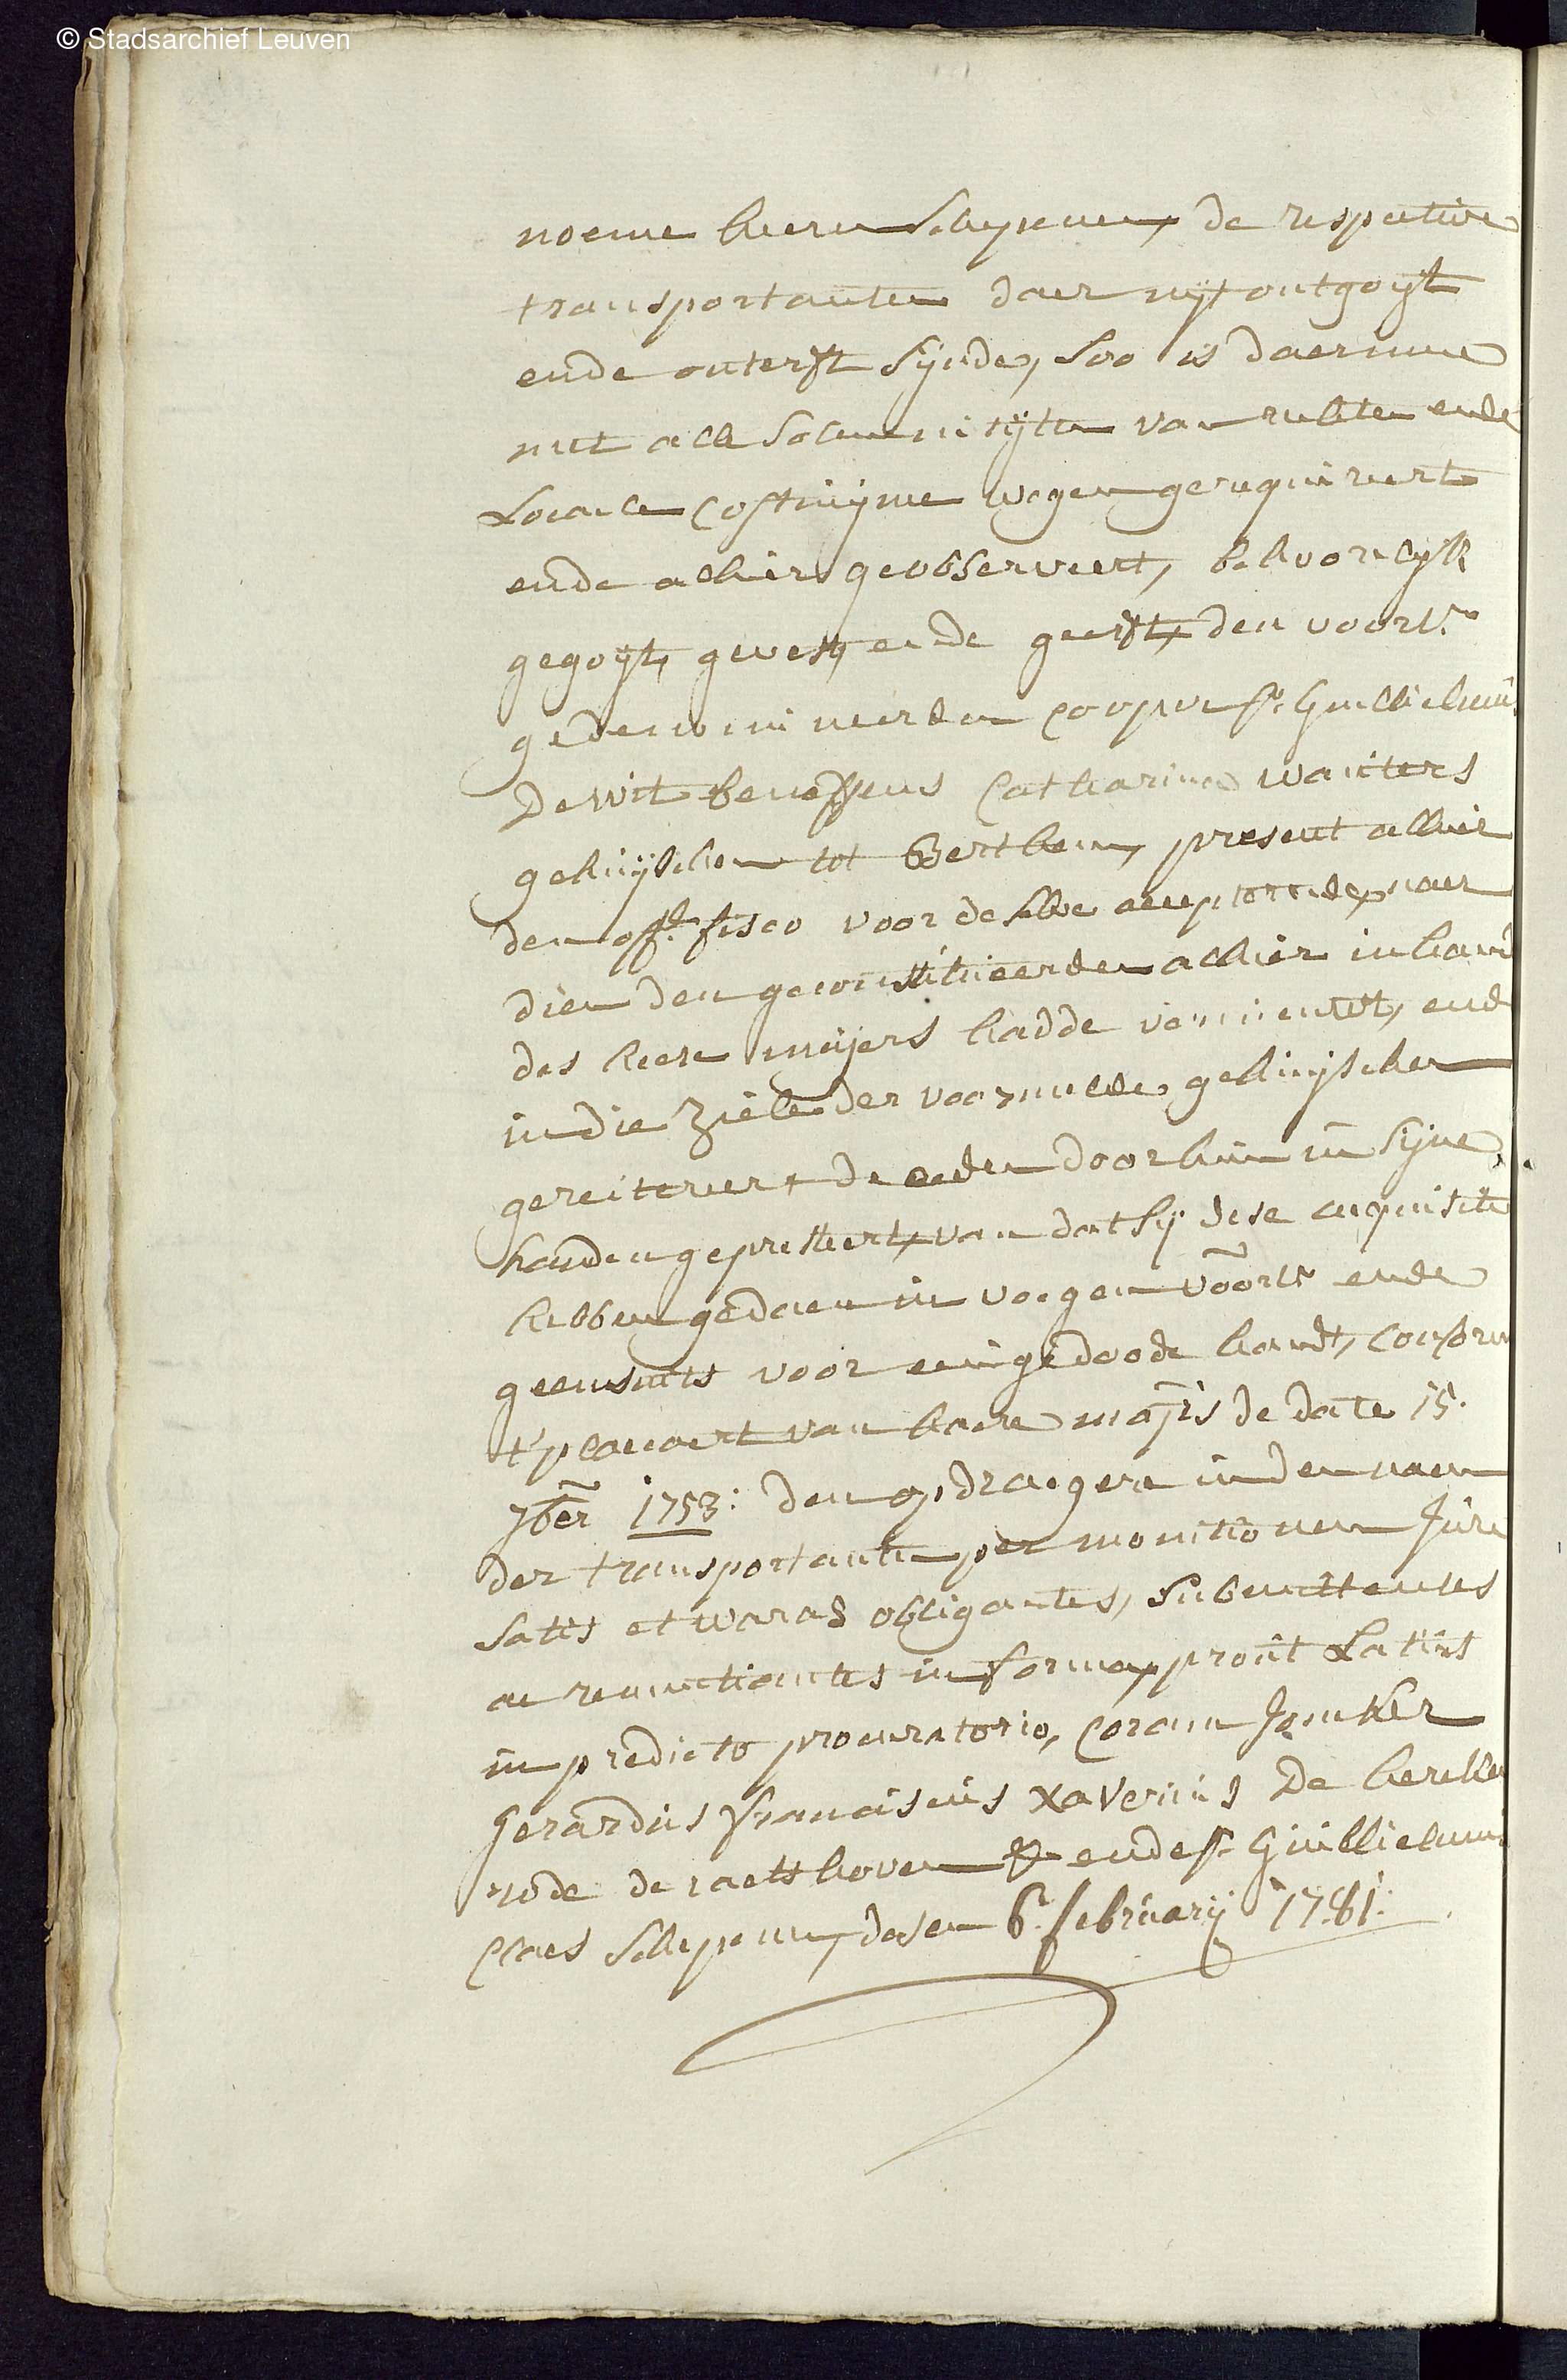 © Stadsarchief Leuven
noemde heeren schepenen, de respective
transportanten daer uijt ontgoyt
ende onterft sijnde, soo is daermede
met alle solemnitijten van rechten ende
Locaele costuijme wegen gerequireert
ende alhier geobserveert, behoorelijk
gegoyt, gevest, ende geerft, den voors.
gedenomineerden cooper sr. Guillielmus
De wit beneffens Catharina wauters
gehuijschen tot Berthem, present alhier
den off.l fisco voor deselve accepterende, naer
dien den geconstitueerden alhier in hand
des heere meijers hadde vernieuwt, ende
in die Ziele der voormelde gehuijschen
gereitereert de eeden door hun in sijne
handen gepresteert, van dat sij dese acquisite
hebben gedaen in voegen voors. ende
geensints voor eenige doode handt, conform
t'placcaert van haere maj.ts de date 15.
7ber 1753: den opdraegere in den naem
der transportanten per monitionem Jure
satis et waras obligantes, submittentes
ac renuntiantes in forma, prout Latius
in predicto procuratorio, Coram Joncker
Gerardus franciscus xaverius De herckenrode
rode de raetshoven & ende sr. Guillielmus
Claes schepenen, desen 6. february 1781.